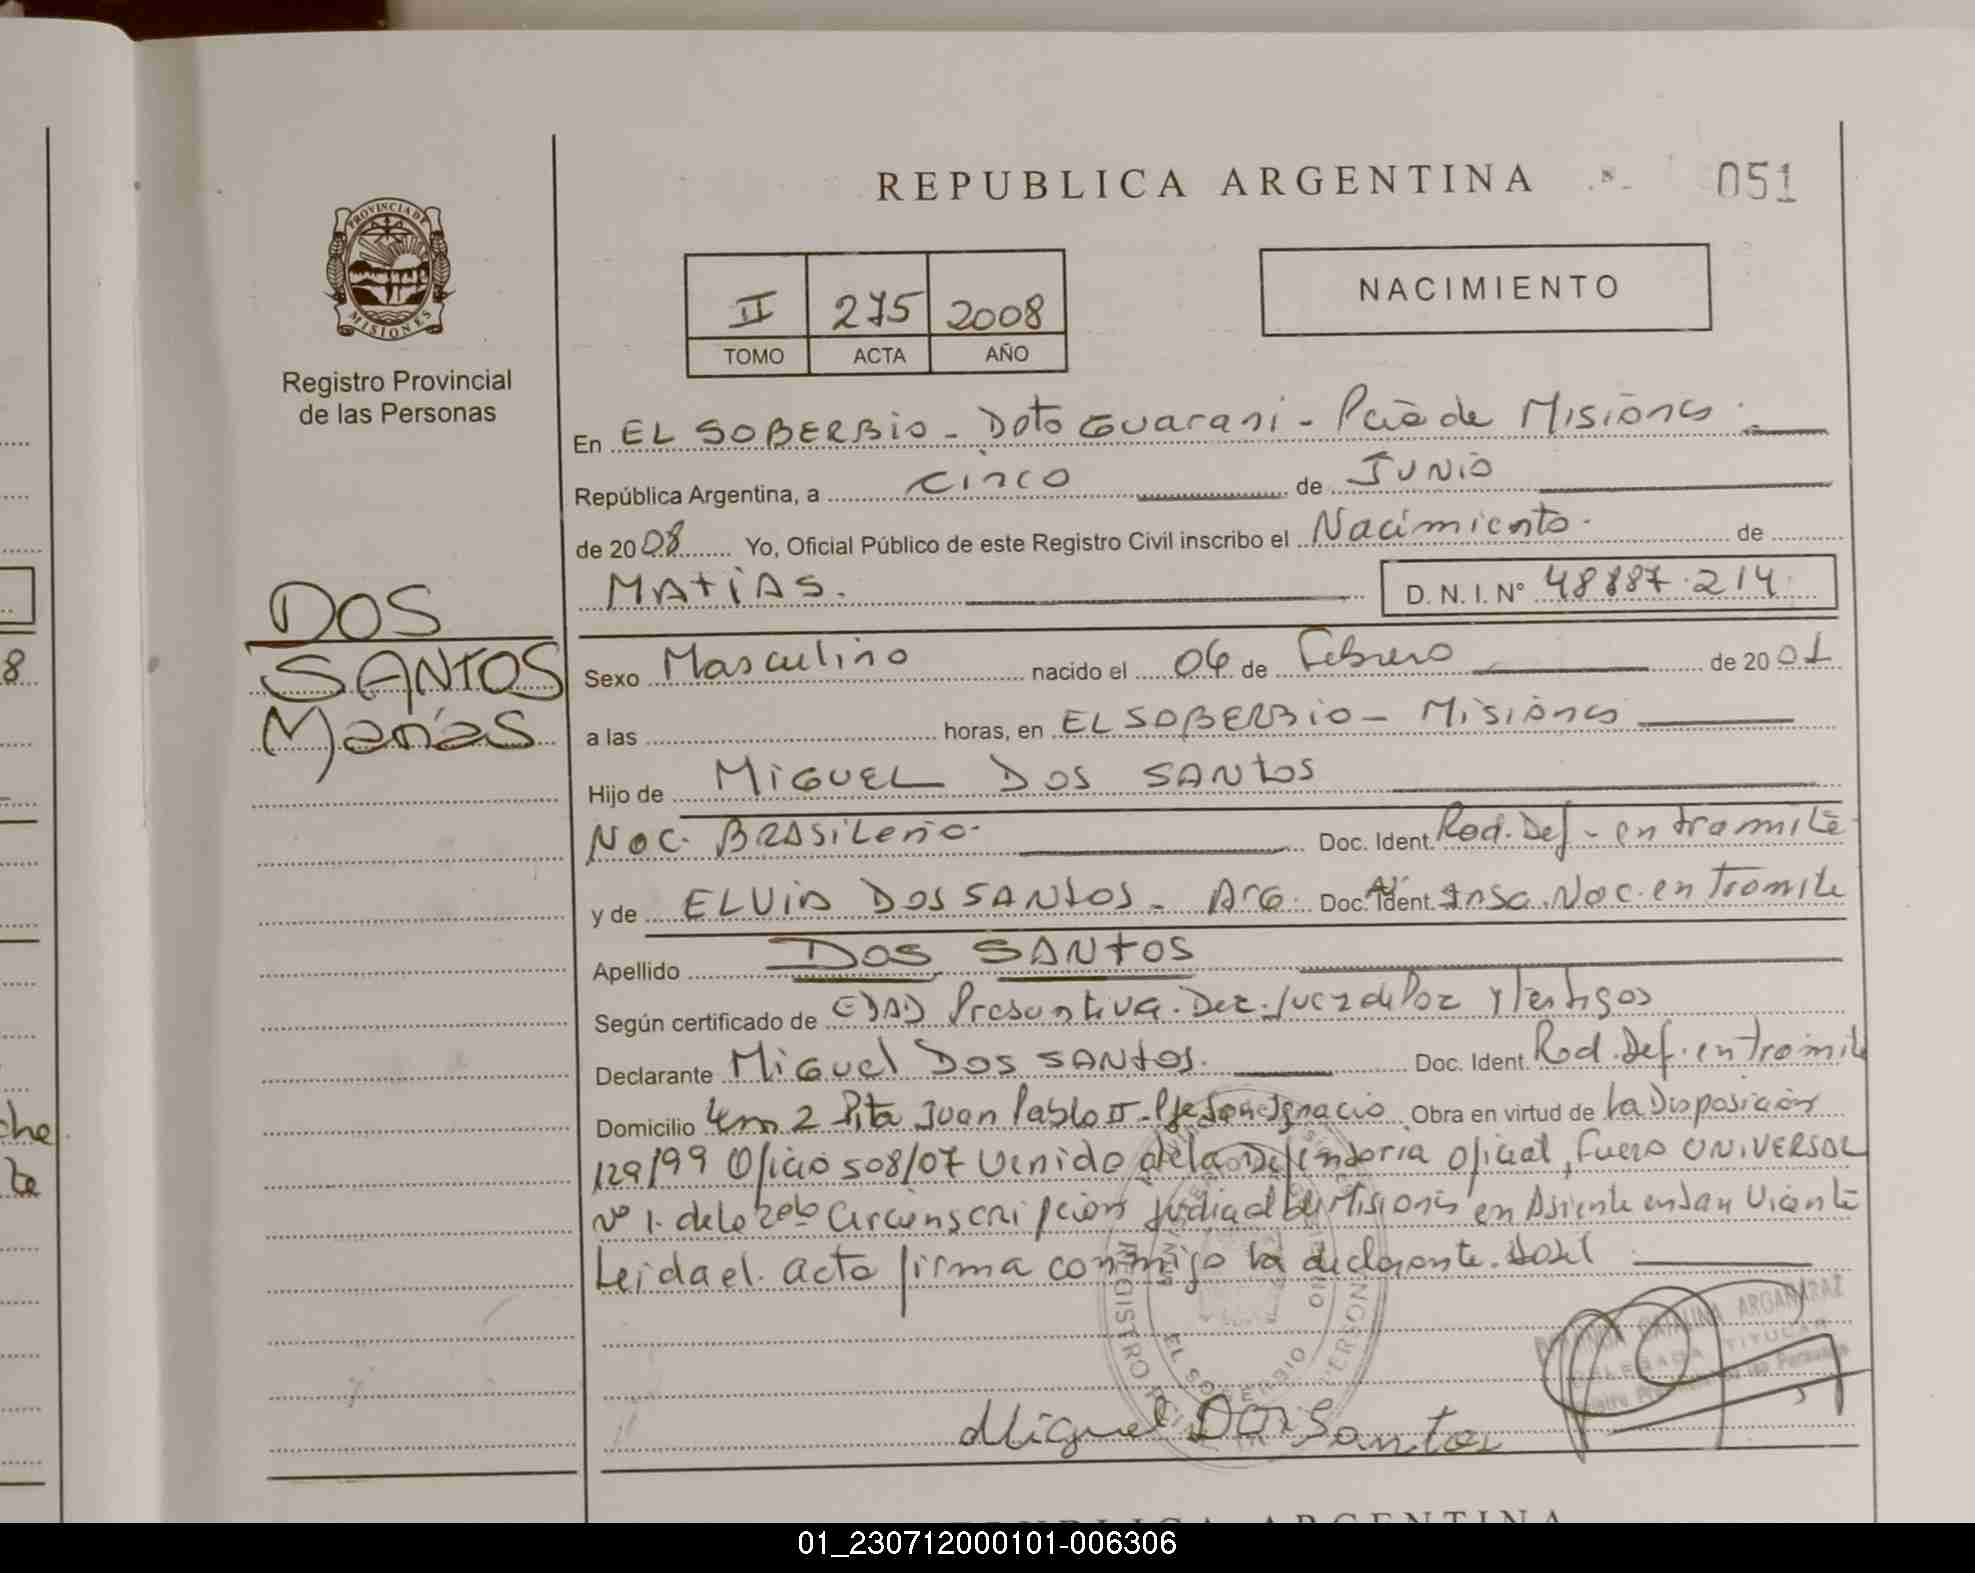 REPUBLICA ARGENTINA
051
PROVINCIA DE
MISIONES
Registro Provincial
de las Personas
II 275 2008
TOMO ACTA AÑO
NACIMIENTO
En EL SOBERBIO - Dpto GUARANI - Pcia de MISIONES
República Argentina, a CINCO de JUNIO
de 2008 Yo, Oficial Público de este Registro Civil inscribo el Nacimiento. de
MATIAS. D. N. I. Nº 48887.214
DOS
SANTOS
Matías
Sexo Masculino nacido el 06 de Febrero de 2001
a las horas, en EL SOBERBIO - MISIONES
Hijo de MIGUEL DOS SANTOS
Nac. BRASILEÑO. Doc. Ident. Rad. Def - en tramite
y de ELVIA DOS SANTOS - ARG. Doc. Ident. Insc. Nac. en Tramite
Apellido DOS SANTOS
Según certificado de EDAD Presuntiva. Dec. Juez de Paz y testigos
Declarante Miguel DOS SANTOS. Doc. Ident. Rad. Def. en Tramite
Domicilio Km 2 Juan Pablo II - Ignacio Obra en virtud de la Disposición
129/99 Oficio 508/07 Venido de la Defensoría Oficial, Fuero UNIVERSAL
Nº 1. de la 2da Circunscripción Judicial de Misiones en Asiento en San Vicente
Leida el acta firma conmigo la declarante.
REGISTRO
EL SOBERBIO
CATALINA ARGAÑARAZ
DELEGADA TITULAR
Miguel Dos Santos
REPUBLICA ARGENTINA
8
che
te
01_230712000101-006306